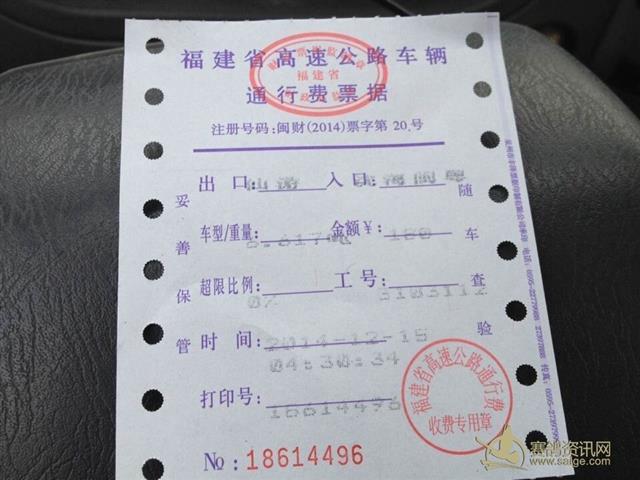 福建省高速公路车辆
通行费票据
福建省
注册号码:闽财(2014)票字第 20.号
出口: 仙游 入口:
车型/重量: 金额¥: 180
超限比例: 0% 工号: 3103112
时间: 2014-12-15
04:30:34
打印号: 18614496
No: 18614496
妥善保管
随车查验
福建省高速公路通行费
收费专用章
赛鸽资讯网
www.saige.com